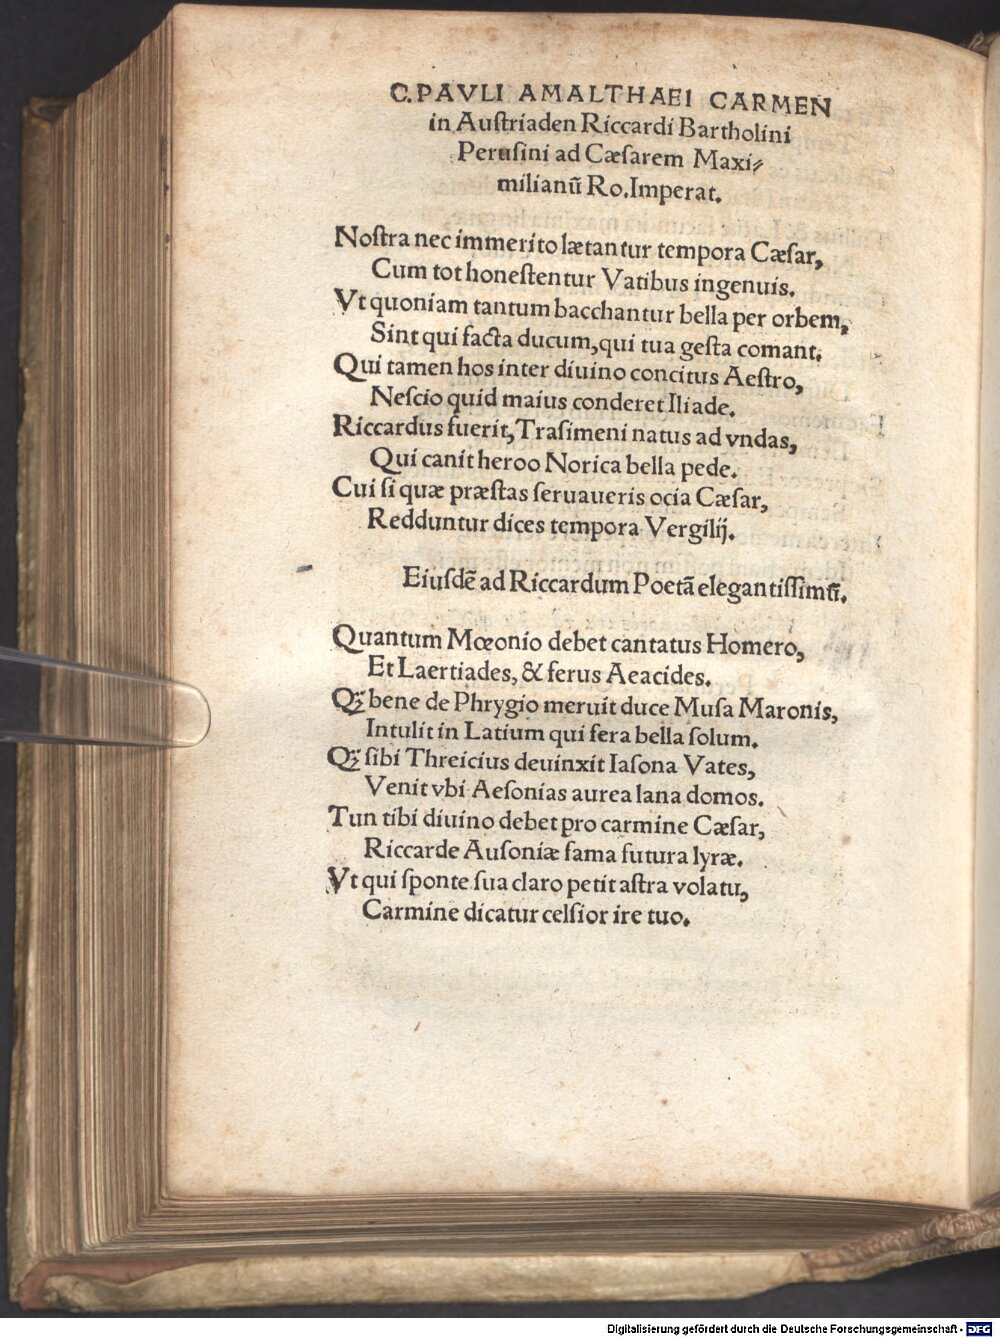 C.PAVLI AMALTHAEI CARMEN
in Auſtriaden Riccardi Bartholini
Peruſini ad Cæſarem Maxi⸗
milianū Ro.Imperat.
Noſtra nec immerito lætantur tempora Cæſar,
Cum tot honeſtentur Vatibus ingenuis.
Vt quoniam tantum bacchantur bella per orbem,
Sint qui facta ducum,qui tua geſta comant.
Qui tamen hos inter diuino concitus Aeſtro,
Neſcio quid maius conderet Iliade.
Riccardus fuerit,Traſimeni natus ad vndas,
Qui canit heroo Norica bella pede.
Cui ſi quæ præſtas ſeruaueris ocia Cæſar,
Redduntur dices tempora Vergilij.
Eiuſdē ad Riccardum Poetā elegantiſſimū.
Quantum Mœonio debet cantatus Homero,
Et Laertiades, & ferus Aeacides.
Qꝫ bene de Phrygio meruit duce Muſa Maronis,
Intulit in Latium qui fera bella ſolum.
Qꝫ ſibi Threicius deuinxit Iaſona Vates,
Venit vbi Aeſonias aurea lana domos.
Tun tibi diuino debet pro carmine Cæſar,
Riccarde Auſoniæ fama futura lyræ.
Vt qui ſponte ſua claro petit aſtra volatu,
Carmine dicatur celſior ire tuo.
Digitalisierung gefördert durch die Deutsche Forschungsgemeinschaft - DFG